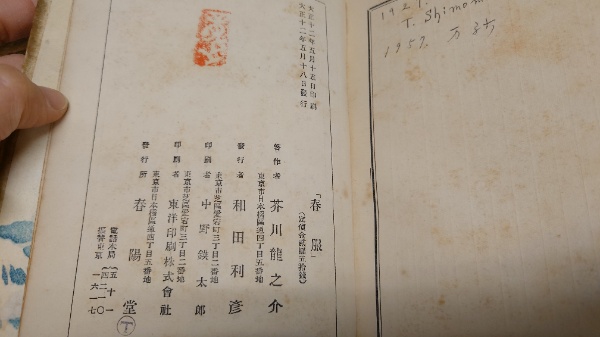 大正十二年五月十五日印刷
大正十二年五月十八日發行
「春服」
(定價金貳圓五拾錢)
著作者 芥川龍之介
東京市日本橋區通四丁目五番地
發行者 和田利彥
東京市芝區愛宕町三丁目二番地
印刷者 中野鍈太郎
東京市芝區愛宕町三丁目二番地
印刷所 東洋印刷株式會社
東京市日本橋區通四丁目五番地
發行所 春陽堂
電話本局
振替東京 一六一七
192
T. Shimom
1957